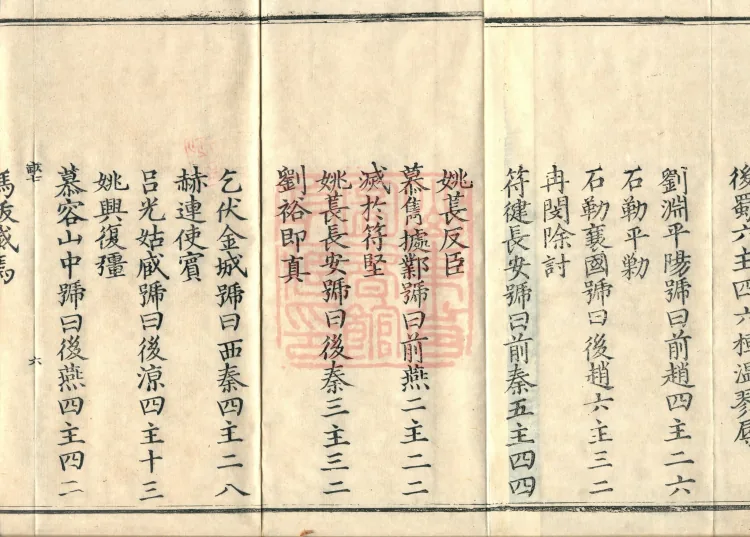 後蜀六主四六桓溫
劉淵平陽號曰前趙四主二六
石勒平勦
石勒襄國號曰後趙六主三二
冉閔除討
符健長安號曰前秦五主四四
姚萇反臣
慕雋據鄴號曰前燕二主二二
滅於符堅
姚萇長安號曰後秦三主三二
劉裕即真
乞伏金城號曰西秦四主二八
赫連使賓
呂光姑臧號曰後涼四主十三
姚興復彊
慕容山中號曰後燕四主四二
馮跋
六